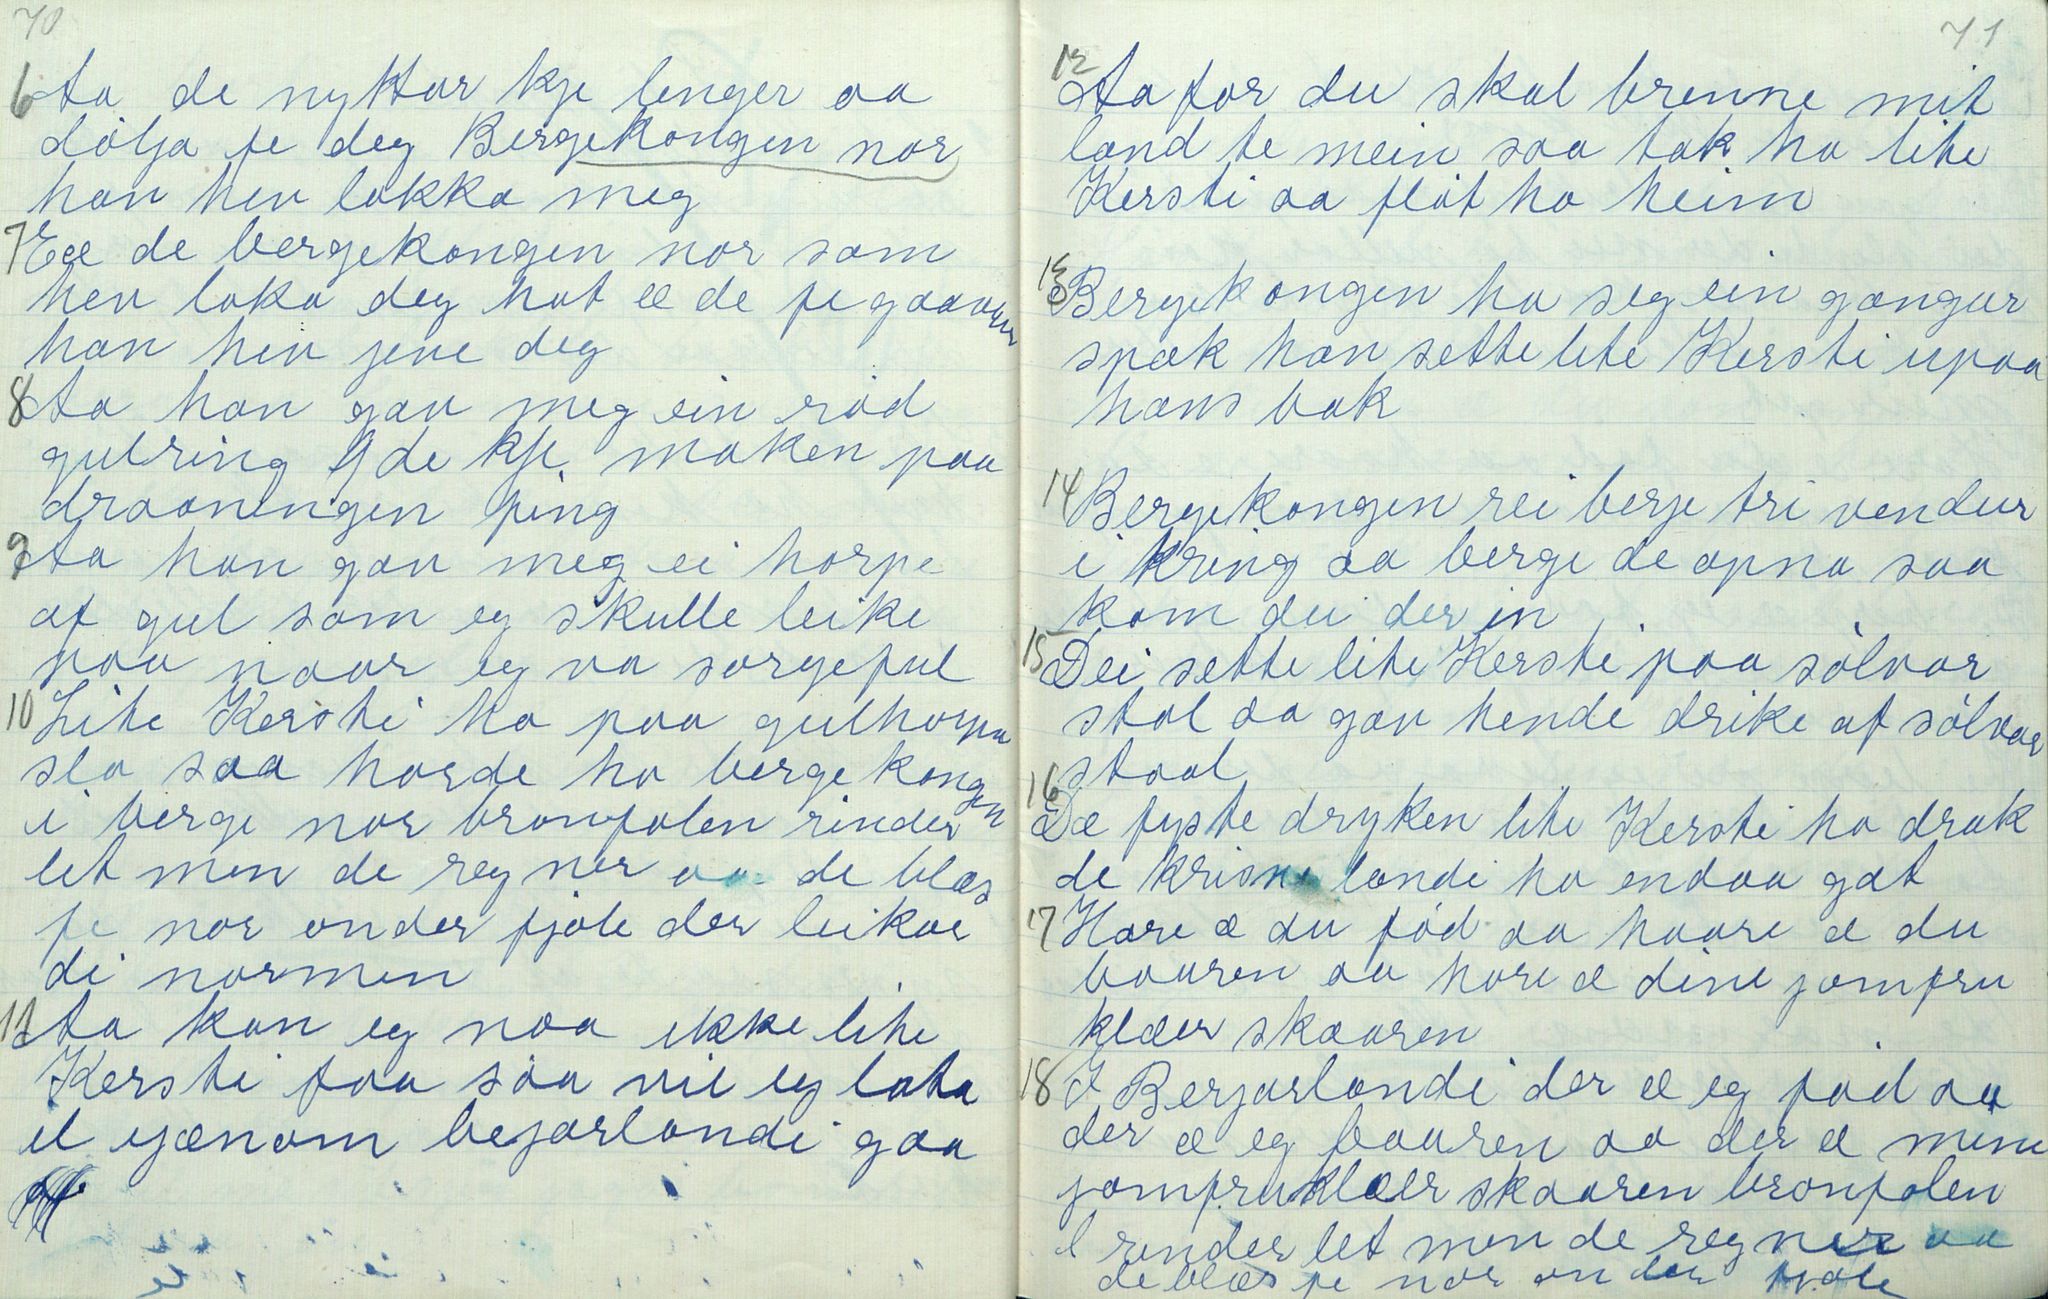 70
6 Aa de nyttar kje lenger aa
dölja fe deg Bergekongen nor
han hev lokka meg
7 Ee de bergekongen nor som
hev loka deg hot æ de fe gaavur
han hev jeve deg
8 Aa han gav meg ein röd
gulring de kje maken paa
draaningen fing
9 Aa han gav meg ei horpe
af gul som eg skulle leike
paa naar eg va sorgeful
10 Lite Kersti ho paa gulhorpa
sla saa horde ho bergekongen
i berge nor bronfolen rinder
let men de regner aa de blæs
fe nor onder fjöle der leikar
di normen
11 Aa kan eg naa ikke lite
Kersti faa saa vil eg lata
el gjænom bejarlandi gaa
71
12 Aa for du skal brenne mit
land te mein saa tak ho lite
Kersti aa flöt ho heim
13 Bergekongen ha seg ein gangar
spæk han sette lite Kersti upaa
hans bak
14 Bergekongen rei berje tri vendur
i kring aa berge de opna saa
kom dei der in
15 Dei sette lite Kersti paa sölvar
stol aa gav hende drike af sölvar
staal
16 Dæ fyste dryken lite Kersti ho drak
de krisne landi ho endaa gat
17 Hore æ du föd aa haare æ du
baaren aa hore æ dine jomfru
klæer skaaren
18 I Berjarlandi der æ eg föd aa
der æ eg baaren aa der æ mine
jomfruklæer skaaren bronfolen
render let men de regner aa
de blæs fe nor onder fjole